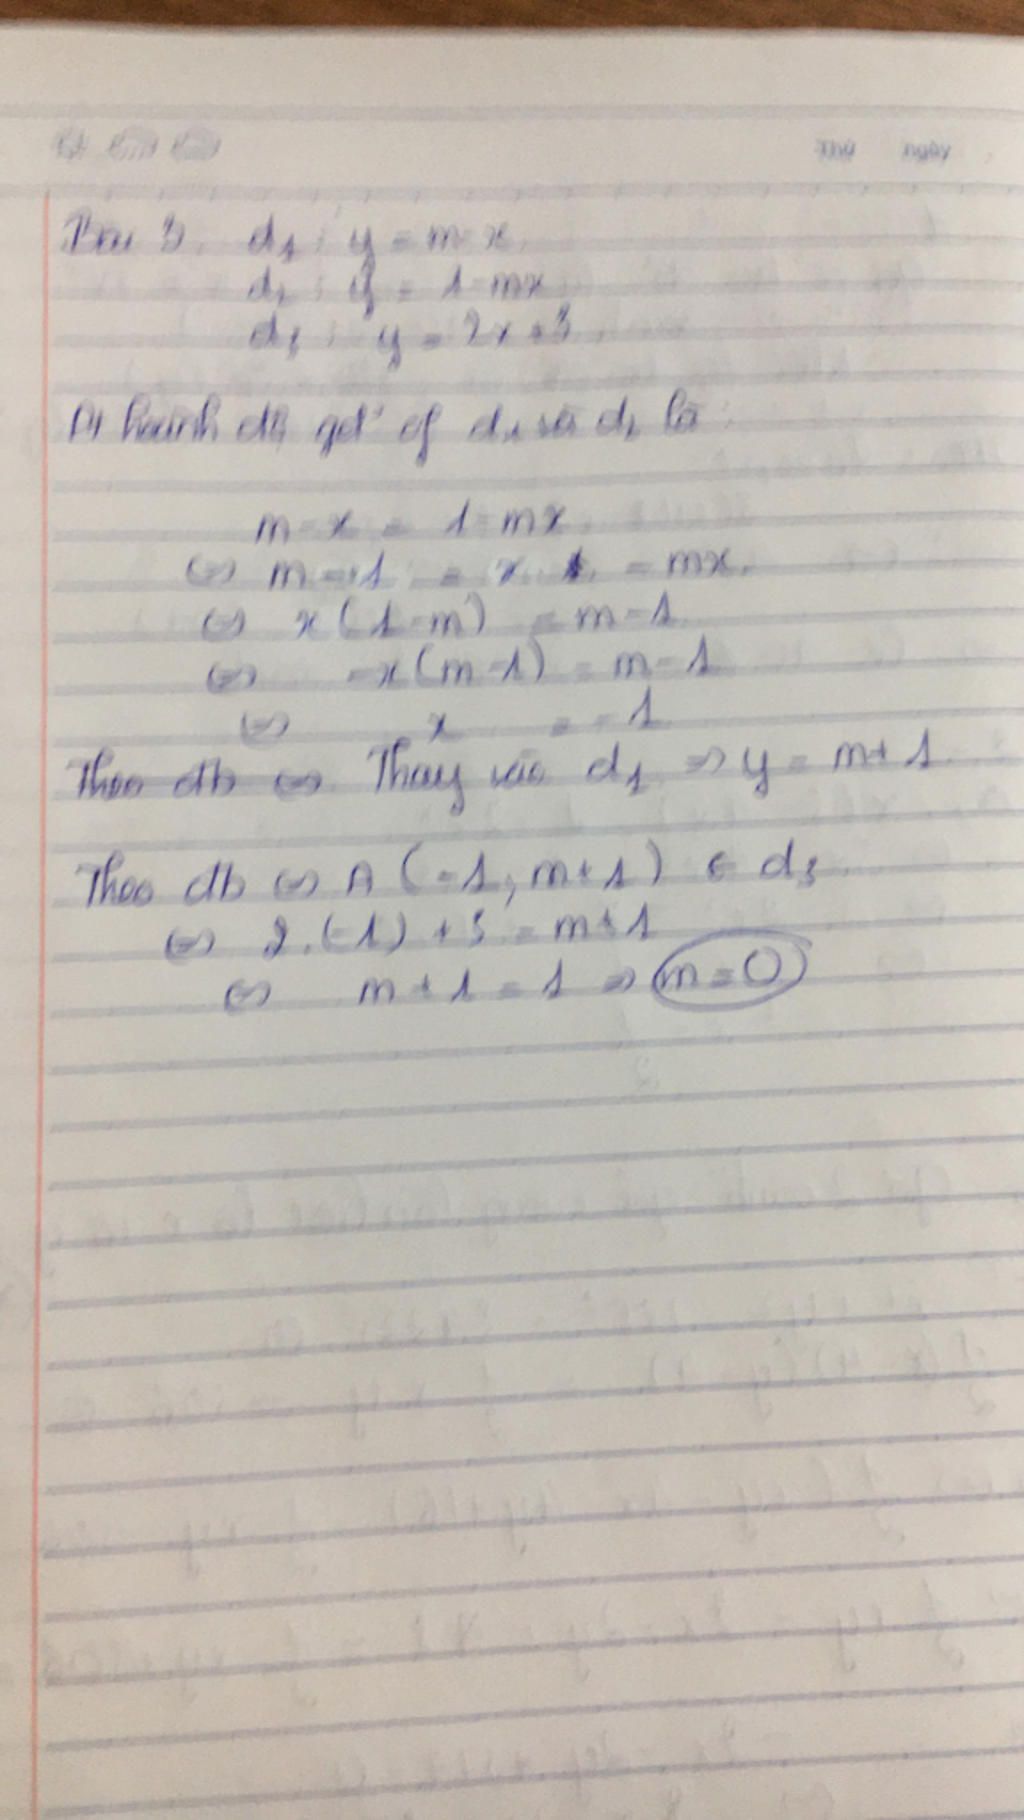 Thứ ngày
Bài 3. d1 : y = m-x
d2 : y = 1-mx
d3 : y = 2x+3
Pt hoành độ gđ' of d1 và d2 là :
m-x = 1-mx
<=> m-1 = x - mx
<=> x(1-m) = m-1
<=> -x(m-1) = m-1
<=> x = -1
Theo đb <=> Thay vào d1 => y = m+1
Theo đb <=> A (-1, m+1) ∈ d3
<=> 2.(-1) + 3 = m+1
<=> m+1 = 1 => m=0